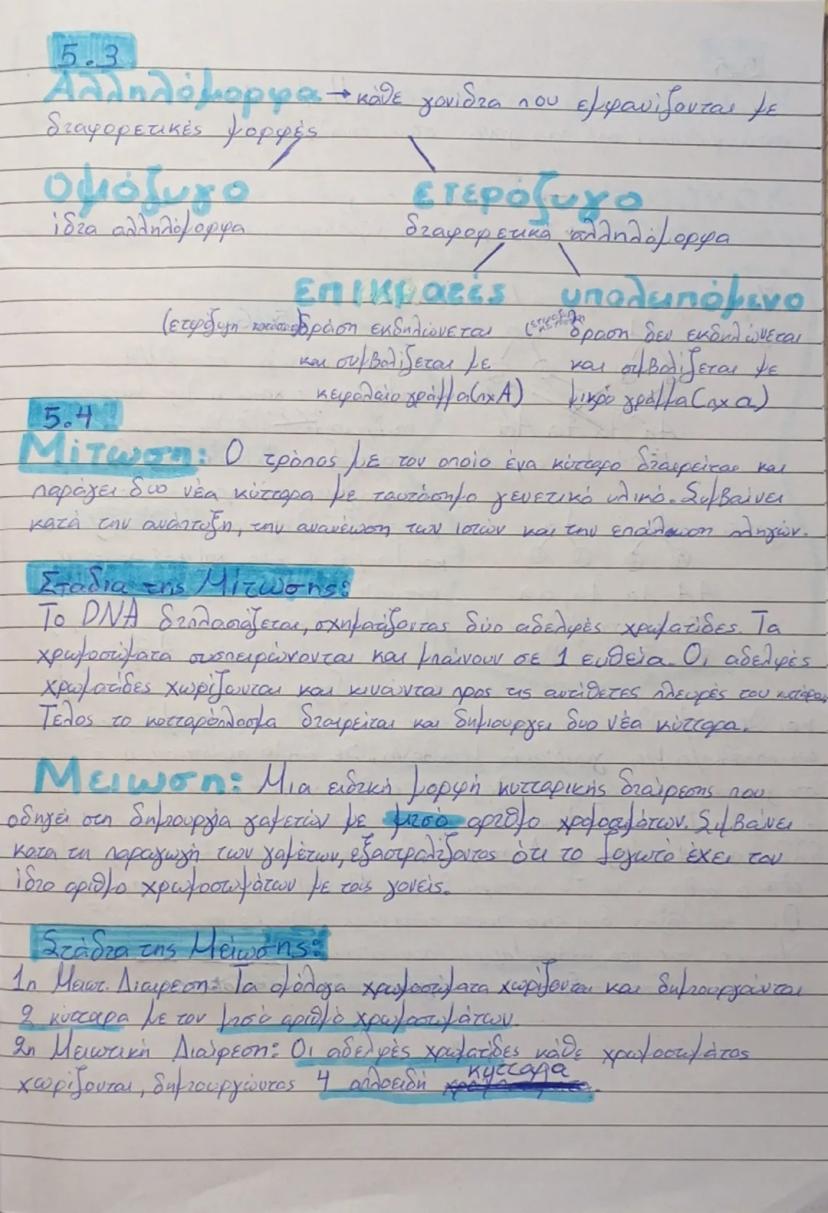 5.3
Αλληλόμορφα → κάθε γονίδια που εμφανίζονται με
διαφορετικές μορφές
Ομόζυγο ετερόζυγο
ίδια αλληλόμορφα διαφορετικά αλληλόμορφα
επικρατές υπολειπόμενο
(ετερόζυγη δράση εκδηλώνεται δραση δεν εκδηλώνεται
και συμβολίζεται με και συμβολίζεται με
κεφαλαίο γράμμα(πχ Α) μικρό γράμμα(πχ α)
5.4
Μίτωση: Ο τρόπος με τον οποίο ένα κύτταρο διαιρείται και
παράγει δυο νέα κύτταρα με ταυτόσημο γενετικό υλικό. Συμβαίνει
κατά την ανάπτυξη, την ανανέωση των ιστών και την επούλωση πληγών.
Στάδια της Μίτωσης:
Το DNA διπλασιάζεται, σχηματίζοντας δύο αδελφές χρωματίδες. Τα
χρωμοσώματα συσπειρώνονται και μπαίνουν σε 1 ευθεία. Οι αδελφές
χρωματίδες χωρίζονται και κινούνται προς τις αντίθετες πλευρές του κυττάρου.
Τέλος το κυτταρόπλασμα διαιρείται και δημιουργεί δυο νέα κύτταρα.
Μείωση: Μια ειδική μορφή κυτταρικής διαίρεσης που
οδηγεί στη δημιουργία γαμετών με μισό αριθμο χρωμοσωμάτων. Συμβαίνει
κατα τη παραγωγή των γαμέτων, εξασφαλίζοντας ότι το ζυγωτό έχει τον
ίδιο αριθμο χρωμοσωμάτων με τους γονείς.
Στάδια της Μείωσης:
1η Μειωτ. Διαιρεση: Τα ομόλογα χρωμοσώματα χωρίζονται και δημιουργούνται
2 κύτταρα με τον μισό αριθμό χρωμοσωμάτων.
2η Μειωτική Διαίρεση: Οι αδελφές χρωματίδες κάθε χρωμοσωμάτος
χωρίζονται, δημιουργώντας 4 απλοειδή κύτταρα.